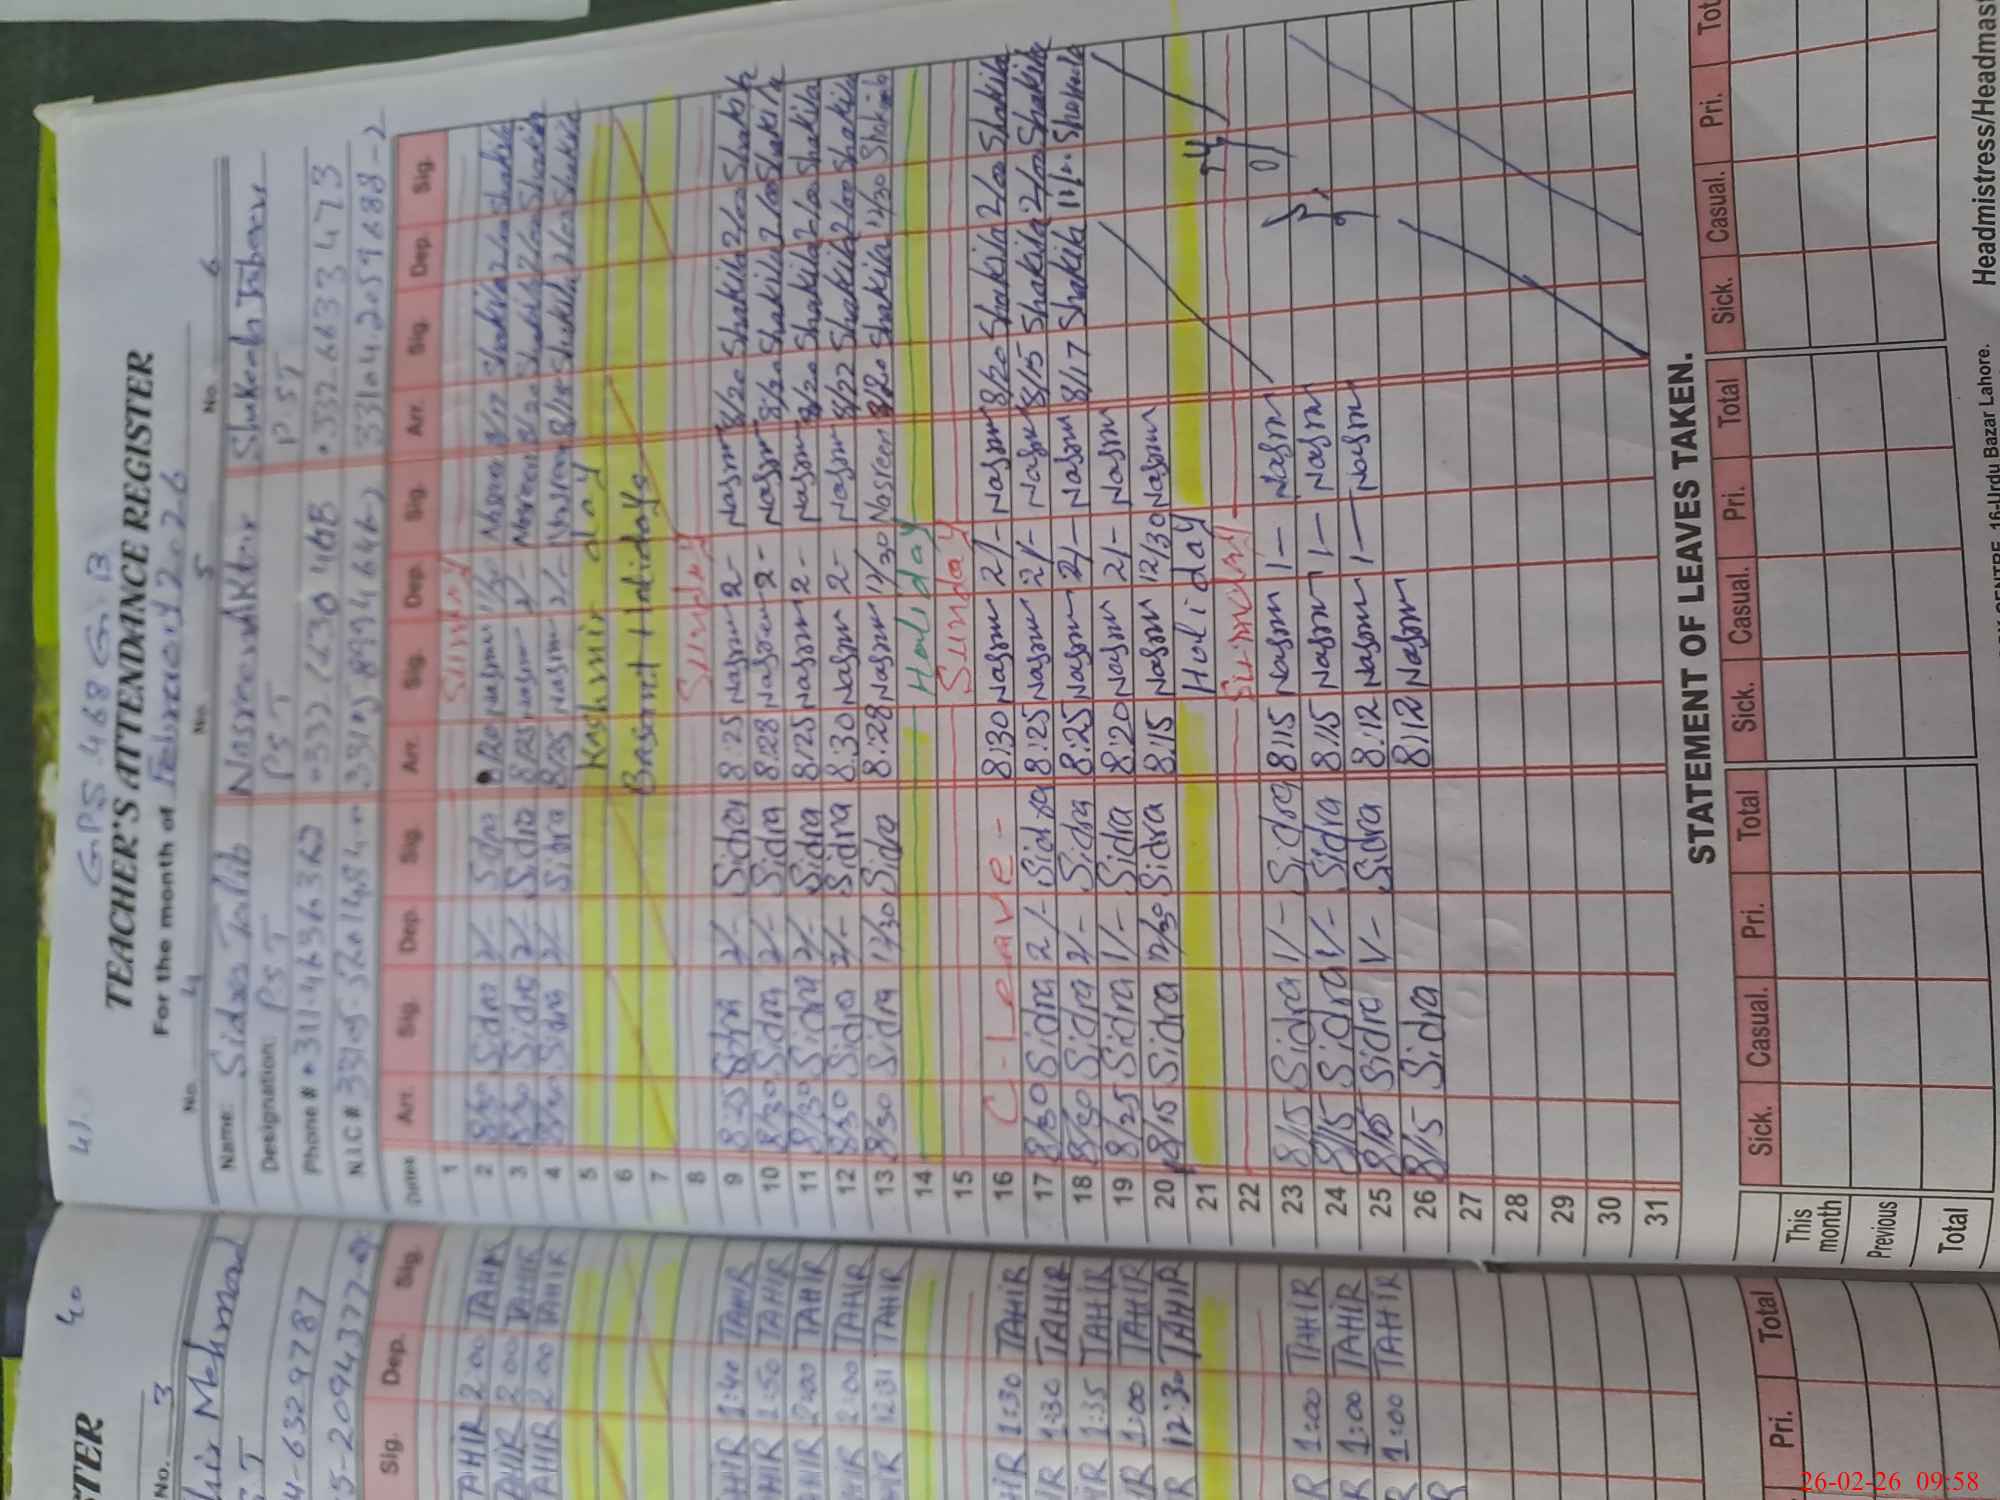 GPS 468 G.B
TEACHER'S ATTENDANCE REGISTER
For the month of February 2026
41
No. 4 No. 5 No. 6
Name: Sidra Talib Nasreen Akhtar Shakeela Jabeen
Designation: PST PST PST
Phone #
N.I.C #
Dates Arr. Sig. Dep. Sig. Arr. Sig. Dep. Sig. Arr. Sig. Dep. Sig.
1 Sunday
2 8/30 Sidra 2/- Sidra 8/20 Nasreen 1/30 Nasreen 8/17 Shakila 2/00 Shakila
3 8/30 Sidra 2/- Sidra 8/25 Nasreen 2/- Nasreen 8/20 Shakila 2/00 Shakila
4 8/30 Sidra 2/- Sidra 8/25 Nasreen 2/- Nasreen 8/18 Shakila 2/00 Shakila
5 Kashmir day
6 Basant Holidays
7
8 Sunday
9 8:25 Sidra 2/- Sidra 8:25 Nasreen 2- Nasreen 8/20 Shakila 2/00 Shakila
10 8/30 Sidra 2/- Sidra 8:28 Nasreen 2- Nasreen 8/20 Shakila 2/00 Shakila
11 8/30 Sidra 2/- Sidra 8/25 Nasreen 2- Nasreen 8/20 Shakila 2/00 Shakila
12 8:30 Sidra 2/- Sidra 8:30 Nasreen 2- Nasreen 8/22 Shakila 2/00 Shakila
13 8/30 Sidra 12/30 Sidra 8:28 Nasreen 12/30 Nasreen 8/20 Shakila 12/30 Shakila
14 Holiday
15 Sunday
16 C-Leave - 8:30 Nasreen 2/- Nasreen 8/20 Shakila 2/00 Shakila
17 8/30 Sidra 2/- Sidra 8:25 Nasreen 2/- Nasreen 8/15 Shakila 2/00 Shakila
18 8/30 Sidra 2/- Sidra 8:25 Nasreen 2/- Nasreen 8/17 Shakila 11/00 Shakila
19 8/25 Sidra 1/- Sidra 8:20 Nasreen 2/- Nasreen
20 8/15 Sidra 12/30 Sidra 8:15 Nasreen 12/30 Nasreen
21 Holiday
22 Sunday
23 8/15 Sidra 1/- Sidra 8:15 Nasreen 1- Nasreen
24 8/15 Sidra 1/- Sidra 8:15 Nasreen 1- Nasreen
25 8/15 Sidra 1/- Sidra 8:12 Nasreen 1- Nasreen
26 8/15 Sidra 8:12 Nasreen
27
28
29
30
31
STATEMENT OF LEAVES TAKEN.
Sick. Casual. Pri. Total Sick. Casual. Pri. Total Sick. Casual. Pri. Tot
This month
Previous
Total
16-Urdu Bazar Lahore. Headmistress/Headmast
40
STER
No. 3
hir Mehmood
4-6329787
Sig. Dep. Sig.
TAHIR 2 00 TAHIR
TAHIR 2 00 TAHIR
TAHIR 2 00 TAHIR
AHIR 1:40 TAHIR
AHIR 1:50 TAHIR
AHIR 2:00 TAHIR
HIR 2:00 TAHIR
HIR 12:31 TAHIR
HIR 1:30 TAHIR
IR 1:30 TAHIR
IR 1:35 TAHIR
R 1:00 TAHIR
R 12:30 TAHIR
R 1:00 TAHIR
R 1:00 TAHIR
R 1:00 TAHIR
R
Pri. Total
26-02-26 09:58